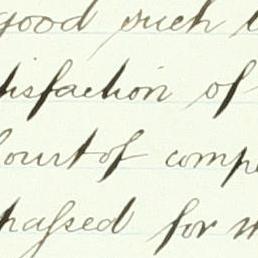 good such
tisfaction of
Court of comp
passed for